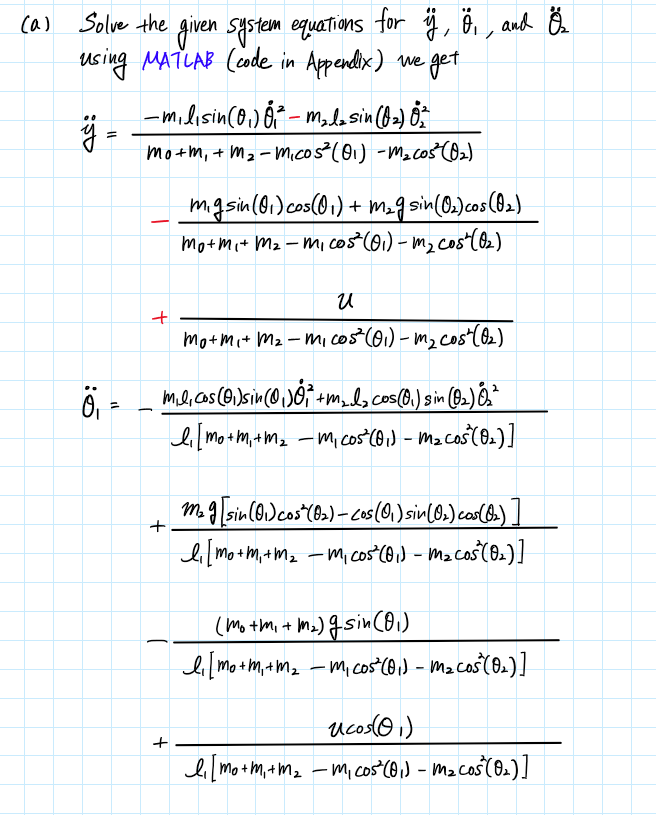 (a) Solve the given system equations for ÿ, θ̈₁, and θ̈₂
using MATLAB (code in Appendix) we get
ÿ = (-m₁l₁sin(θ₁)θ̇₁² - m₂l₂sin(θ₂)θ̇₂²) / (m₀+m₁+m₂-m₁cos²(θ₁)-m₂cos²(θ₂))
- (m₁gsin(θ₁)cos(θ₁) + m₂gsin(θ₂)cos(θ₂)) / (m₀+m₁+m₂-m₁cos²(θ₁)-m₂cos²(θ₂))
+ u / (m₀+m₁+m₂-m₁cos²(θ₁)-m₂cos²(θ₂))
θ̈₁ = - (m₁l₁cos(θ₁)sin(θ₁)θ̇₁²+m₂l₂cos(θ₁)sin(θ₂)θ̇₂²) / (l₁[m₀+m₁+m₂-m₁cos²(θ₁)-m₂cos²(θ₂)])
+ (m₂g[sin(θ₁)cos²(θ₂)-cos(θ₁)sin(θ₂)cos(θ₂)]) / (l₁[m₀+m₁+m₂-m₁cos²(θ₁)-m₂cos²(θ₂)])
- ((m₀+m₁+m₂)gsin(θ₁)) / (l₁[m₀+m₁+m₂-m₁cos²(θ₁)-m₂cos²(θ₂)])
+ (ucos(θ₁)) / (l₁[m₀+m₁+m₂-m₁cos²(θ₁)-m₂cos²(θ₂)])